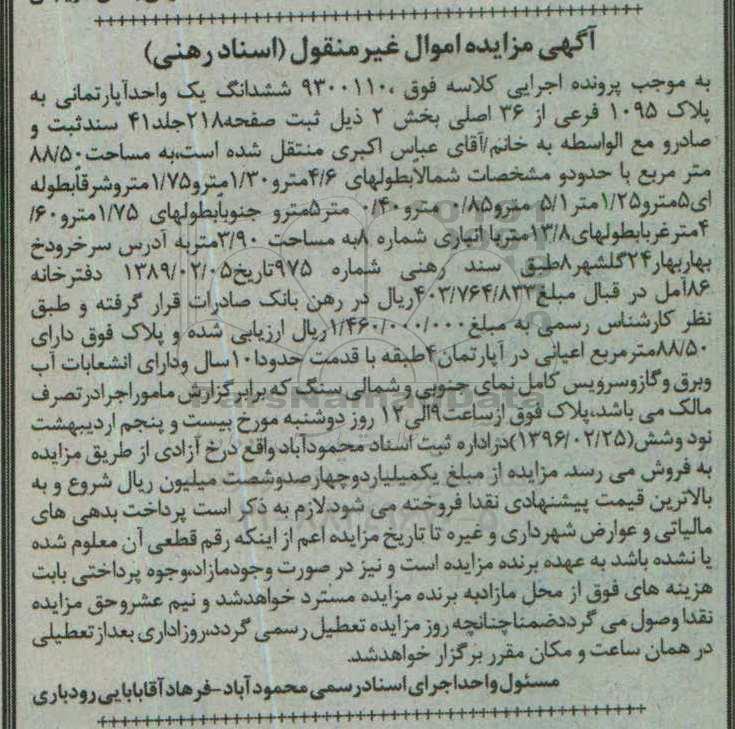 آگهی مزایده اموال غیر منقول (اسناد رهنی)
به موجب پرونده اجرایی کلاسه فوق ،۹۳۰۰۱۱۰ ششدانگ یک واحدآپارتمانی به
پلاک ۱۰۹۵ فرعی از ۳۶ اصلی بخش ۲ ذیل ثبت صفحه۲۱۸جلد۴۱ سندثبت و
صادرو مع الواسطه به خانم/آقای عباس اکبری منتقل شده است،به مساحت۸۸/۵۰
متر مربع با حدودو مشخصات شمالاًبطولهای ۴/۶مترو۱/۳۰مترو۱/۷۵متروشرقاًبطوله
ای۵مترو۱/۲۵متر ۵/۱ مترو۰/۸۵ مترو۰/۴۰ متر۵مترو جنوباًبطولهای ۱/۷۵مترو۶۰/
۴مترغربابطولهای۱۳/۸متربا انباری شماره ۸به مساحت ۳/۹۰متربه آدرس سرخرودخ
بهاربهار۲۴گلشهر۸طبق سند رهنی شماره ۹۷۵تاریخ۱۳۸۹/۰۲/۰۵ دفترخانه
۸۶آمل در قبال مبلغ۴۰۳/۷۶۴/۸۳۳ریال در رهن بانک صادرات قرار گرفته و طبق
نظر کارشناس رسمی به مبلغ۱/۴۶۰/۰۰۰/۰۰۰ریال ارزیابی شده و پلاک فوق دارای
۸۸/۵۰مترمربع اعیانی در آپارتمان۴طبقه با قدمت حدودا۱۰سال ودارای انشعابات آب
وبرق وگازوسرویس کامل نمای جنوبی و شمالی سنگ که برابر گزارش ماموراجرادرتصرف
مالک می باشد،پلاک فوق ازساعت۹الی۱۲ روز دوشنبه مورخ بیست و پنجم اردیبهشت
نود وشش(۱۳۹۶/۰۲/۲۵)دراداره ثبت اسناد محمودآباد واقع درخ آزادی از طریق مزایده
به فروش می رسد. مزایده از مبلغ یکمیلیاردوچهارصدوشصت میلیون ریال شروع و به
بالاترین قیمت پیشنهادی نقدا فروخته می شود.لازم به ذکر است پرداخت بدهی های
مالیاتی و عوارض شهرداری و غیره تا تاریخ مزایده اعم از اینکه رقم قطعی آن معلوم شده
یا نشده باشد به عهده برنده مزایده است و نیز در صورت وجودمازاد،وجوه پرداختی بابت
هزینه های فوق از محل مازادبه برنده مزایده مسترد خواهدشد و نیم عشروحق مزایده
نقدا وصول می گردد.ضمناچنانچه روز مزایده تعطیل رسمی گردد،روزاداری بعدازتعطیلی
در همان ساعت و مکان مقرر برگزار خواهدشد.
مسئول واحداجرای اسنادرسمی محمودآباد-فرهادآقابابایی رودباری